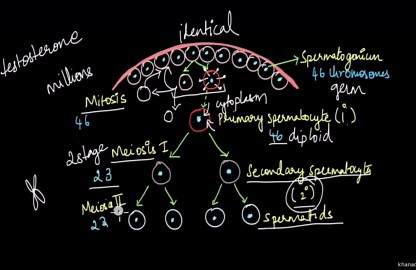 identical
testosterone
millions
Spermatogonium
46 chromosomes
germ
Mitosis
46
cytoplasm
Primary spermatocyte (1°)
46 diploid
2stage Meiosis I
23
Secondary spermatocyte
(2°)
Meiosis II
23
Spermatids
khanac